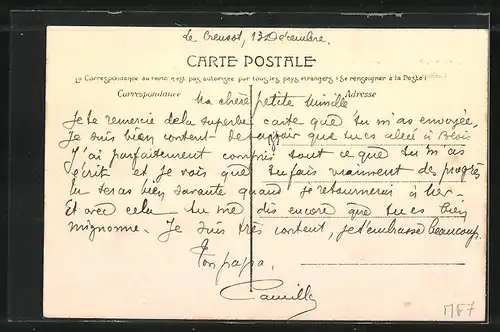 Le Creusot, 13 Décembre.
CARTE POSTALE
La Correspondance au recto n'est pas autorisée par tous les pays étrangers (Se renseigner à la Poste)
Correspondance
Adresse
Ma chère petite Mimille
Je te remercie de la superbe carte que tu m'as envoyée.
Je suis bien content de savoir que tu es allée à Blois
J'ai parfaitement compris tout ce que tu m'as
écrit et je vois que tu fais vraiment des progrès
tu seras bien savante quand je retournerai à
Et avec cela tu me dis encore que tu es bien
mignonne. Je suis très content, je t'embrasse beaucoup.
Ton papa.
Camille
MF7